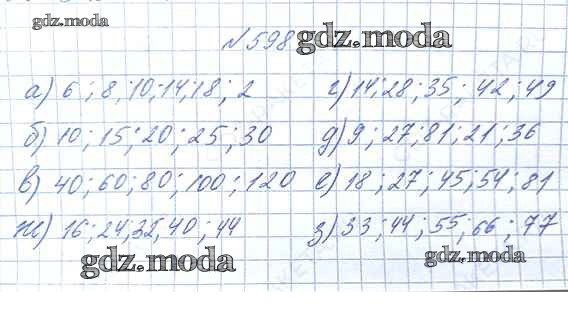 gdz.moda
№598 gdz.moda
а) 6; 8; 10; 14; 18; 2
г) 14; 28; 35; 42; 49
б) 10; 15; 20; 25; 30
д) 9; 27; 81; 21; 36
в) 40; 60; 80; 100; 120
е) 18; 27; 45; 54; 81
ж) 16; 24; 32, 40; 44
з) 33; 44; 55; 66; 77
gdz.moda
gdz.moda